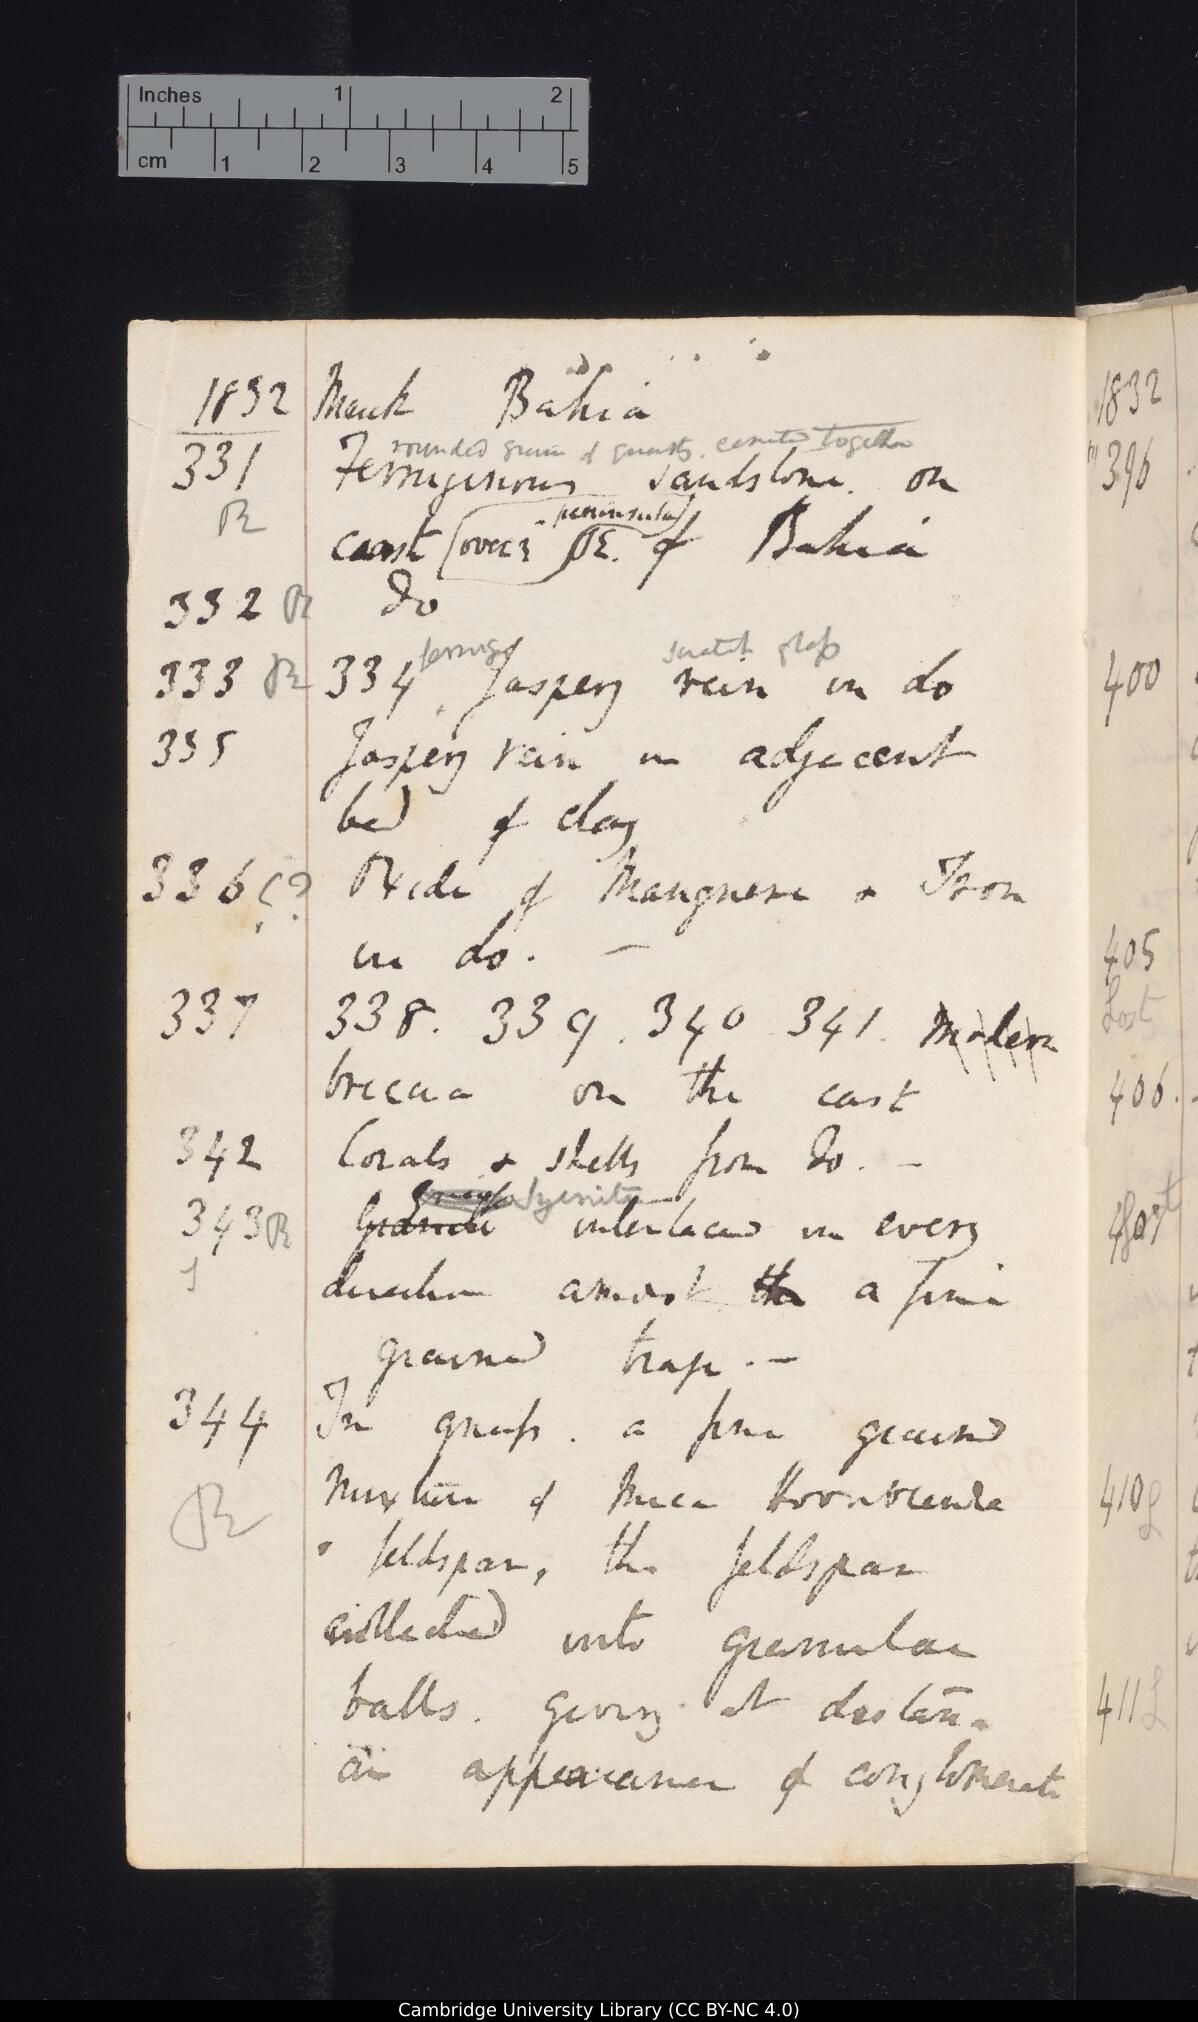 Inches 1 2
cm 1 2 3 4 5
1832 March Bahia
rounded grains of quartz cemented together
331 Ferruginous sandstone on
R coast (over peninsula) of Bahia
332 R Do
ferrug scratch glass
333 R 334 Jaspery vein in do
335 Jaspery vein in adjacent
bed of clay
336 (? Oxide of Manganese & Iron
in do. —
337 338. 339. 340 341. Modern
breccia on the east
342 Corals & shells from Do. —
Syenite
343 R Granite interlaced in every
direction amost the a fine
grained trap. —
344 In gneiss. a fine grained
R mixture of Mica Hornblende
& feldspar, the feldspar
collected into granular
balls. giving at distance
an appearance of conglomerate
1832
396
400
405
Lost
406.
407
410
411
Cambridge University Library (CC BY-NC 4.0)